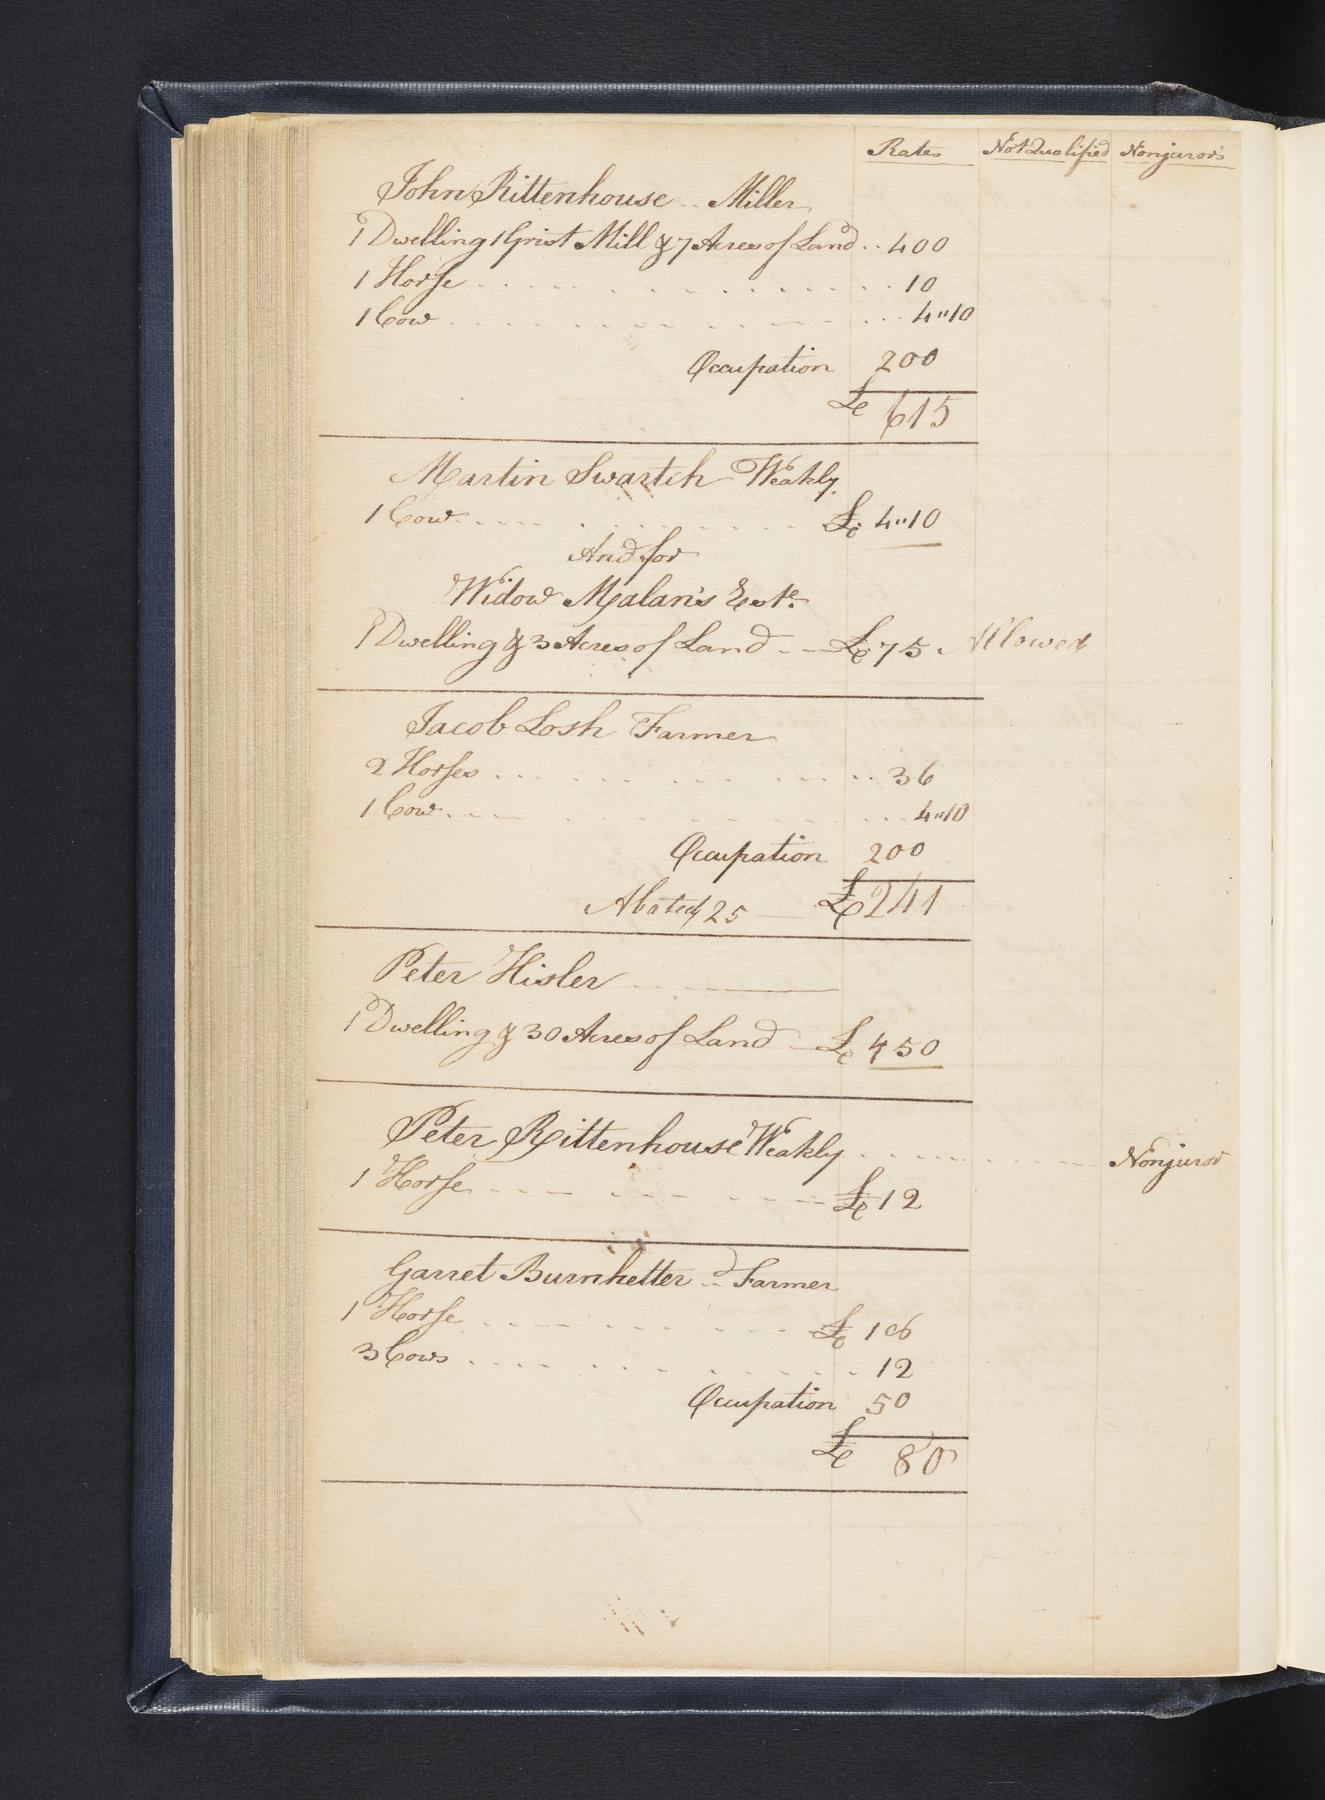 Rates Not Qualified Nonjuror's
John Rittenhouse .. Miller
1 Dwelling 1 Grist Mill & 7 Acres of Land .. 400
1 Horse 10
1 Cow 4"10
Occupation 200
£ 615
Martin Swartch Weakly
1 Cow £ 4"10
And for
Widow Malan's Este.
1 Dwelling & 3 Acres of Land £ 75 Allowed
Jacob Losh Farmer
2 Horses 36
1 Cow 4"10
Occupation 200
Abated 25 £ 241
Peter Hisler
1 Dwelling & 30 Acres of Land £ 450
Peter Rittenhouse Weakly Nonjuror
1 Horse £ 12
Garret Burnhetter .. Farmer
1 Horse £
3 Cows 12
Occupation 50
£ 80